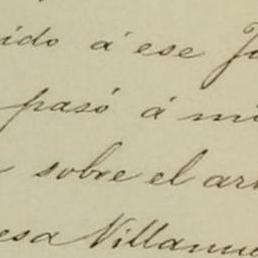 ido á ese
pasó á mi
sobre el ar
esa Villanue